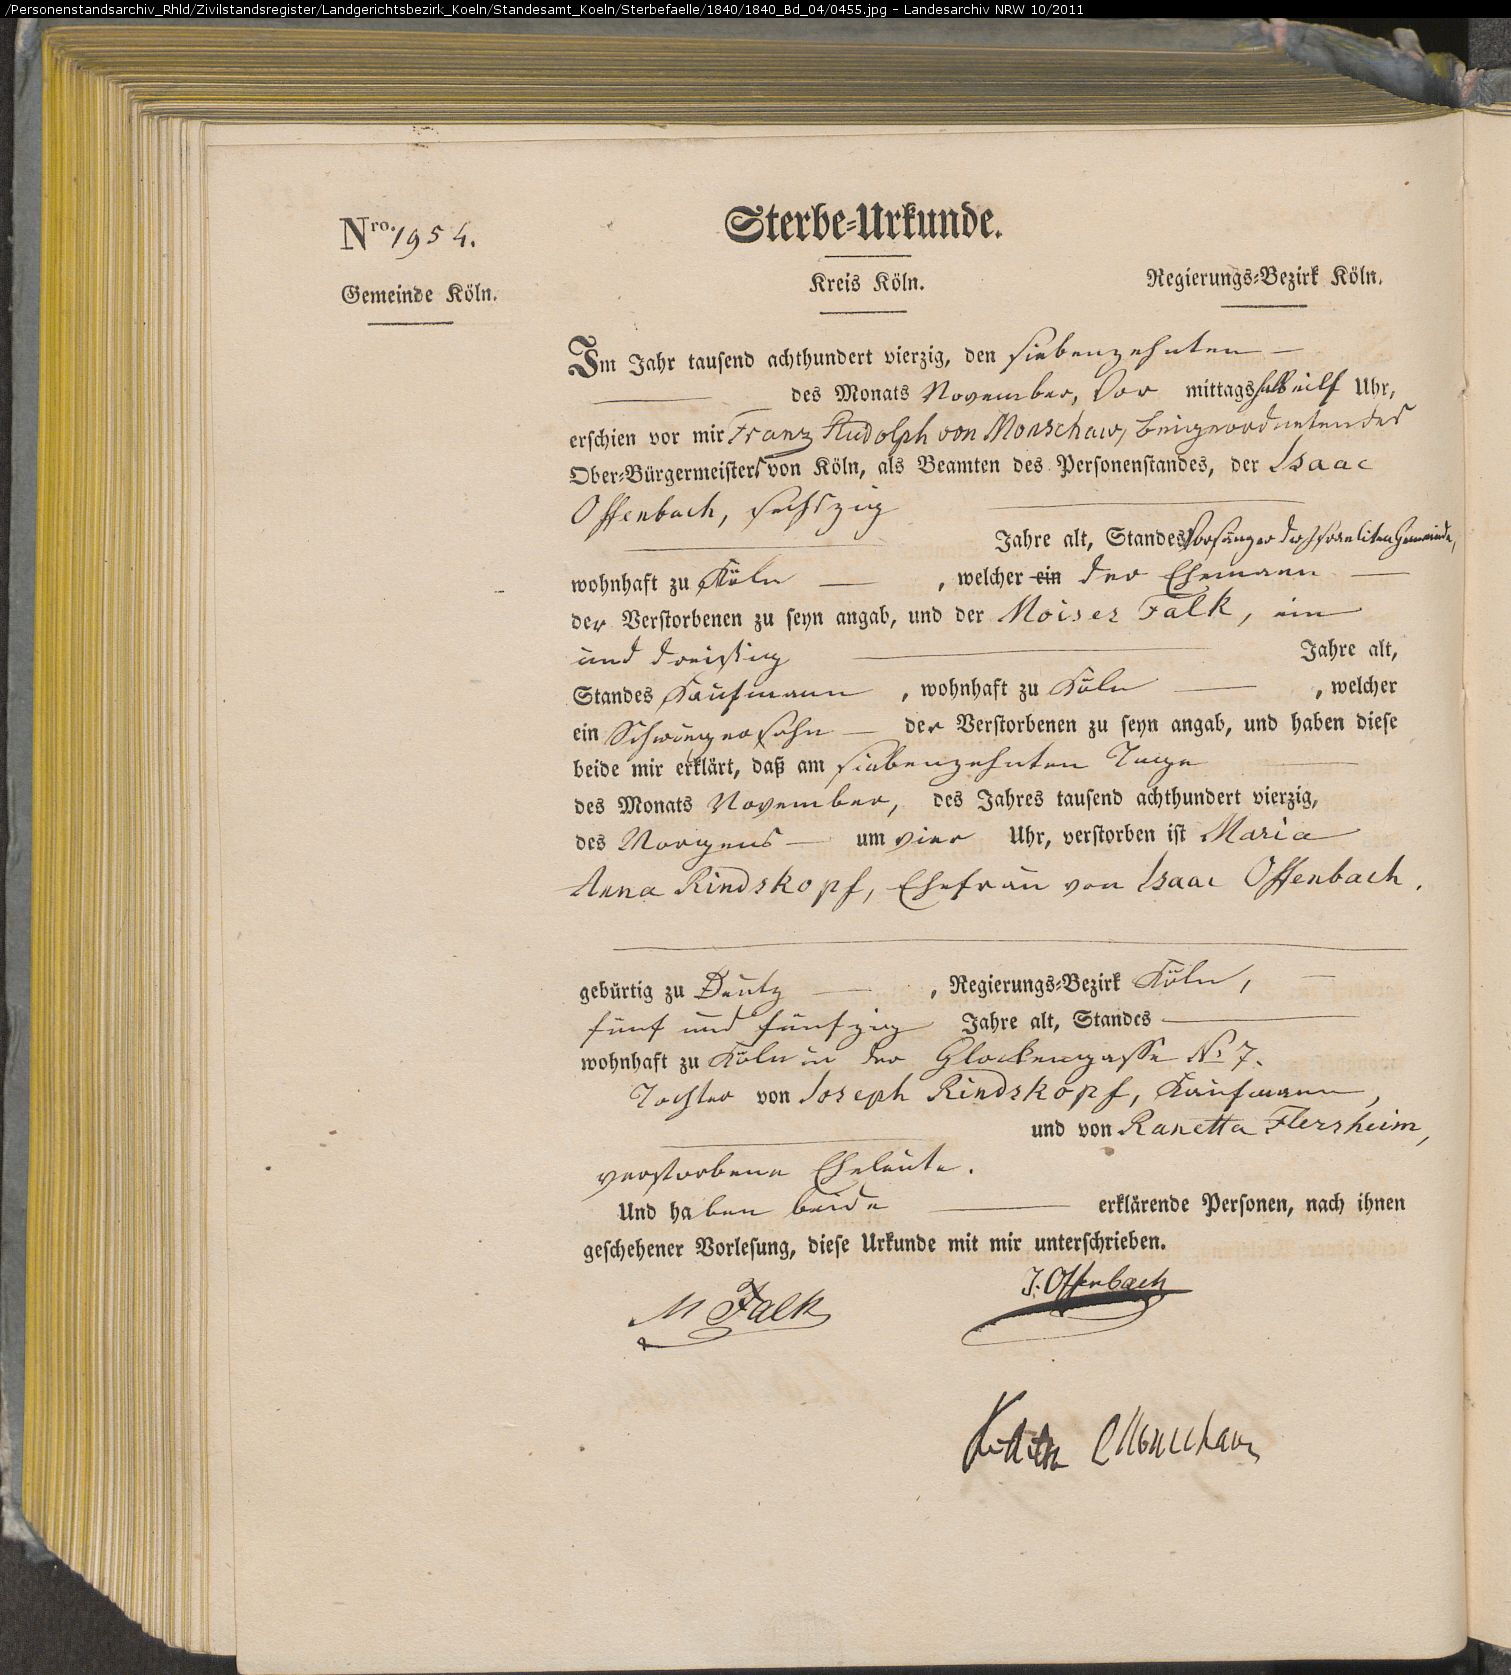 /Personenstandsarchiv_Rhld/Zivilstandsregister/Landgerichtsbezirk_Koeln/Standesamt_Koeln/Sterbefaelle/1840/1840_Bd_04/0455.jpg - Landesarchiv NRW 10/2011
Nro. 1954.
Sterbe-Urkunde.
Gemeinde Köln.
Kreis Köln.
Regierungs-Bezirk Köln.
Im Jahr tausend achthundert vierzig, den siebenzehnten
des Monats November, Vor mittags halb eilf Uhr,
erschien vor mir Franz Rudolph von Monschaw, Beigeordneter des
Ober-Bürgermeisters von Köln, als Beamten des Personenstandes, der Isaac
Offenbach, sechszig
Jahre alt, Standes Vorsänger der Israeliten Gemeinde,
wohnhaft zu Köln, welcher ein der Ehemann
der Verstorbenen zu seyn angab, und der Moises Falk, ein
und dreißig Jahre alt,
Standes Kaufmann, wohnhaft zu Köln, welcher
ein Schwiegersohn der Verstorbenen zu seyn angab, und haben diese
beide mir erklärt, daß am siebenzehnten Tage
des Monats November, des Jahres tausend achthundert vierzig,
des Morgens um vier Uhr, verstorben ist Maria
Anna Rindskopf, Ehefrau von Isaac Offenbach.
gebürtig zu Deutz, Regierungs-Bezirk Köln,
fünf und fünfzig Jahre alt, Standes
wohnhaft zu Köln in der Glockengasse No 7.
Tochter von Joseph Rindskopf, Kaufmann,
und von Ranetta Flersheim,
verstorbene Eheleute.
Und haben beide erklärende Personen, nach ihnen
geschehener Vorlesung, diese Urkunde mit mir unterschrieben.
M Falk
J. Offenbach
Monschaw